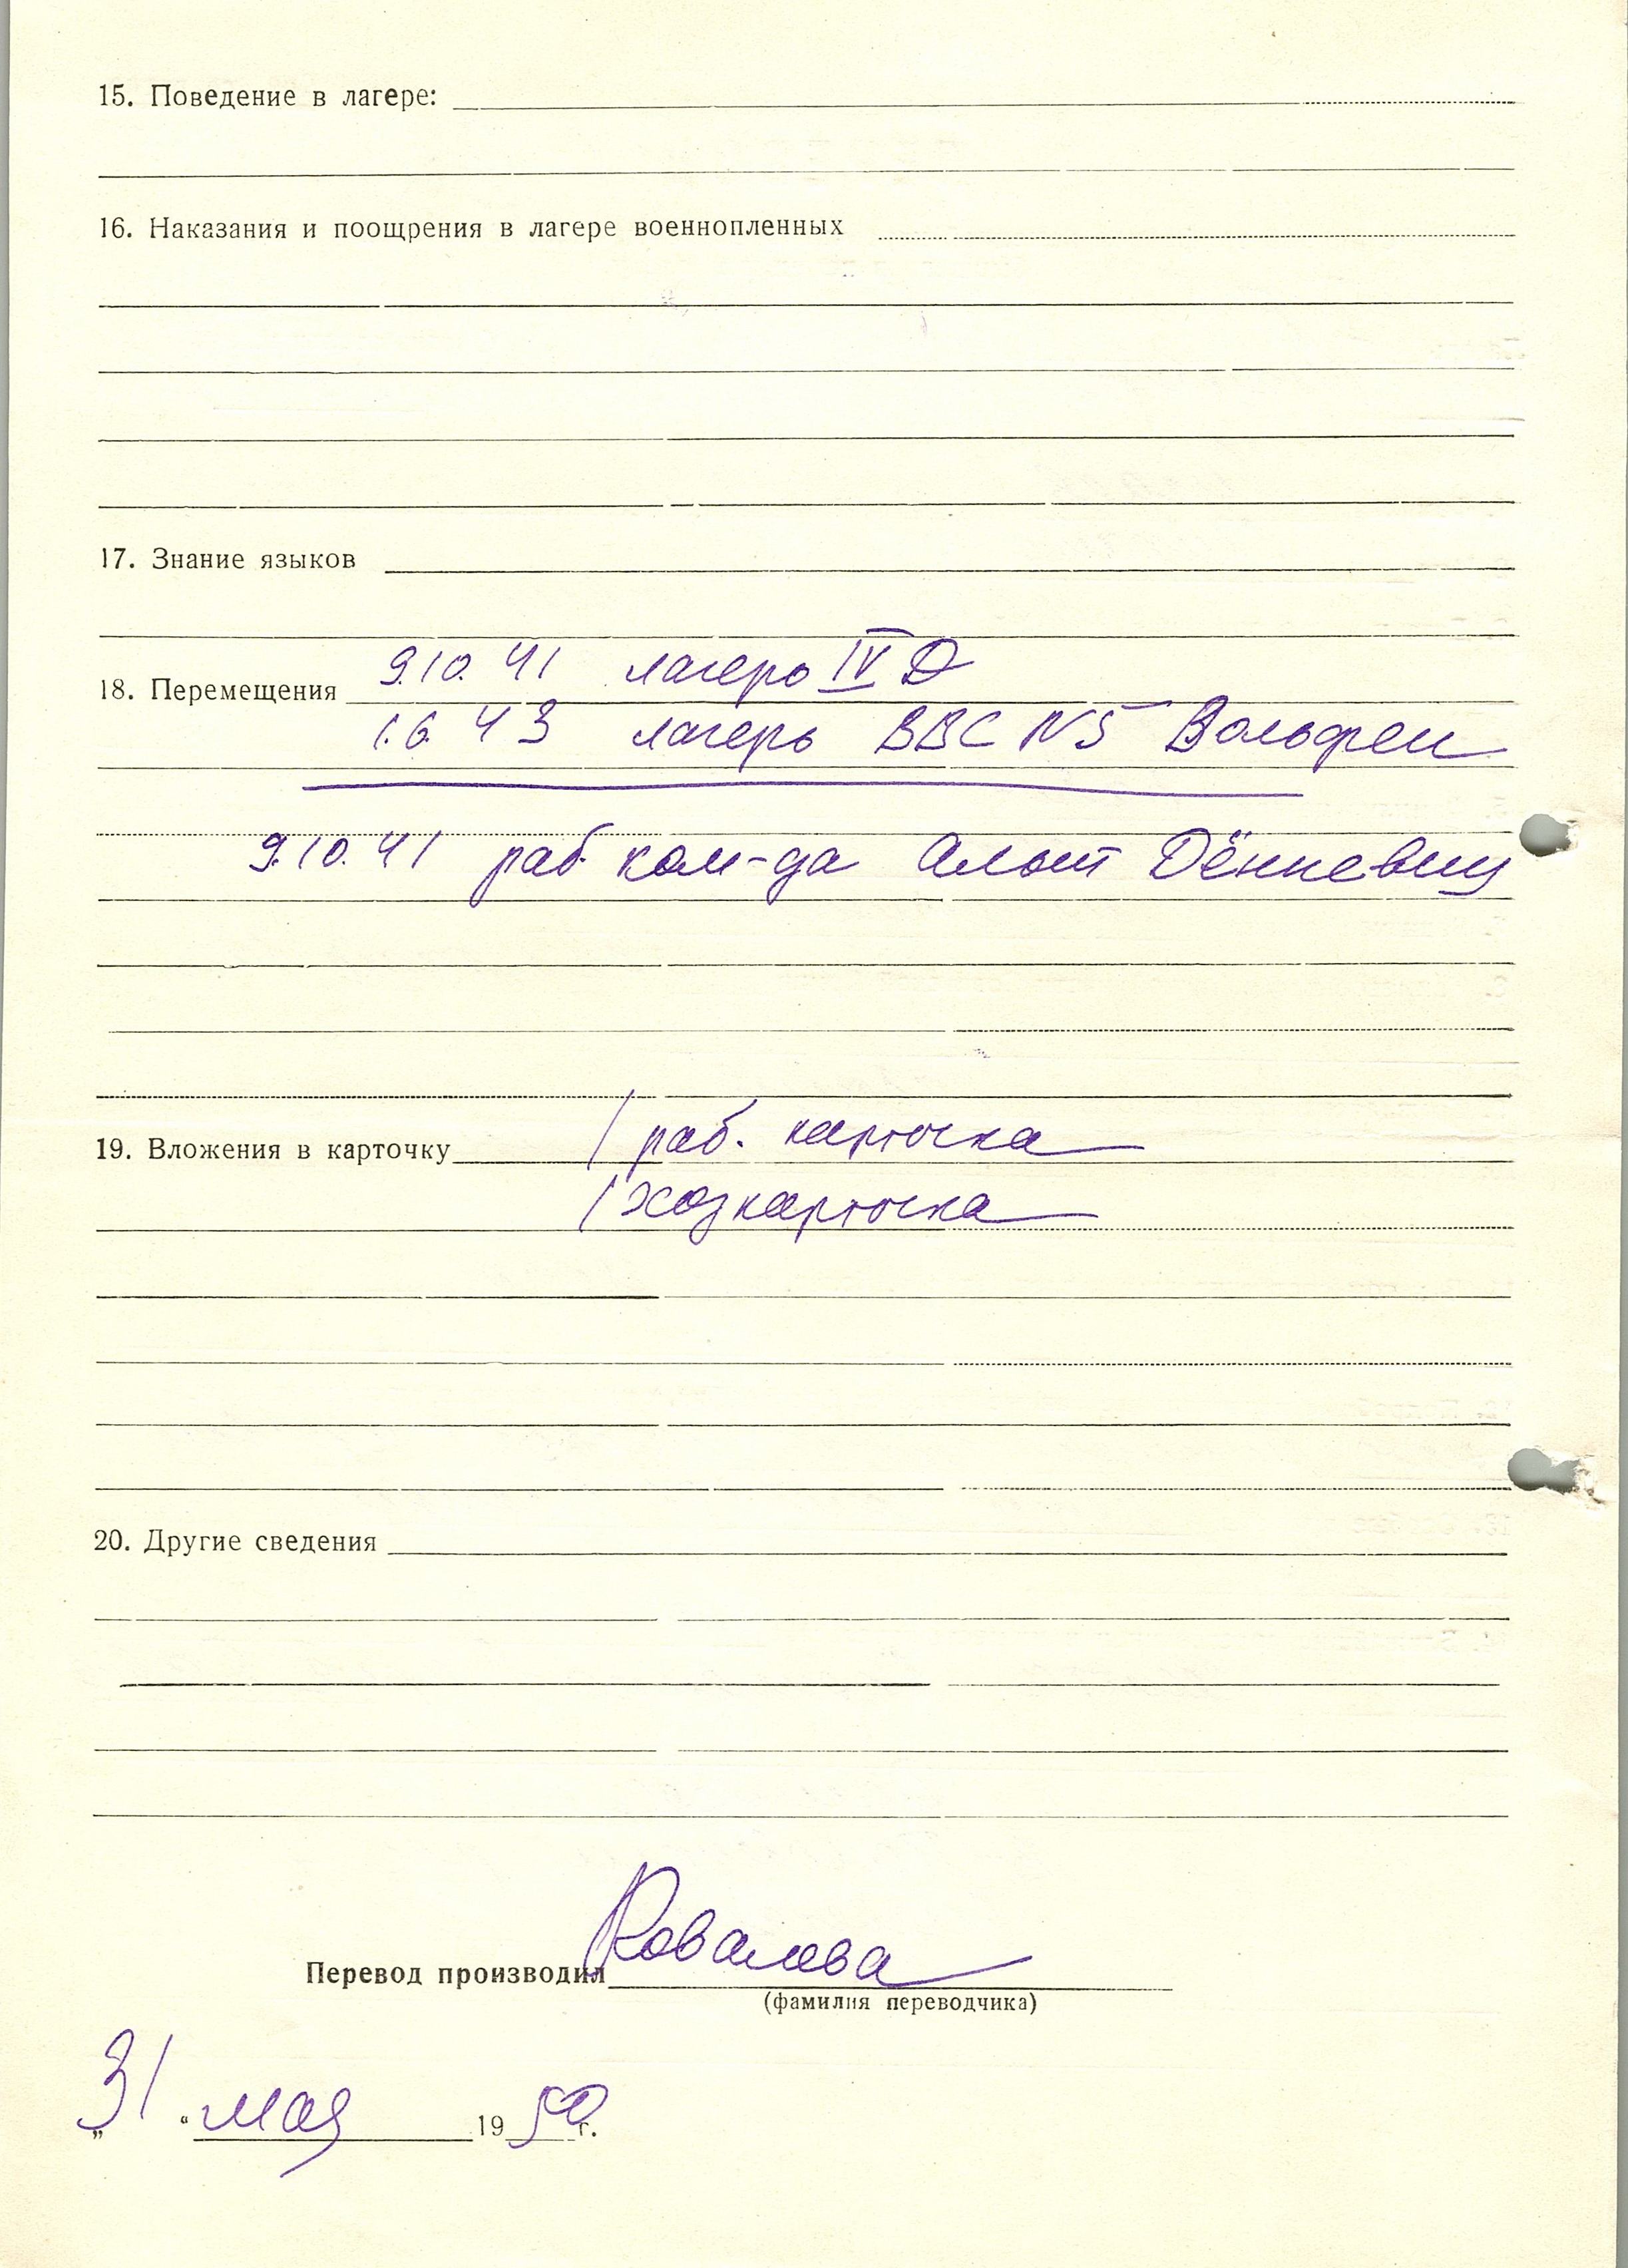 15. Поведение в лагере:
16. Наказания и поощрения в лагере военнопленных
17. Знание языков
9.10.41 лагерь IV D
18. Перемещения
1.6.43 лагерь ВВС N5 Вольфен
9.10.41 раб ком-да Альт Дённевиц
1 раб. карточка
19. Вложения в карточку
1 хозкарточка
20. Другие сведения
Ковалева
Перевод производил
(фамилия переводчика)
„31“ мая 1950 г.